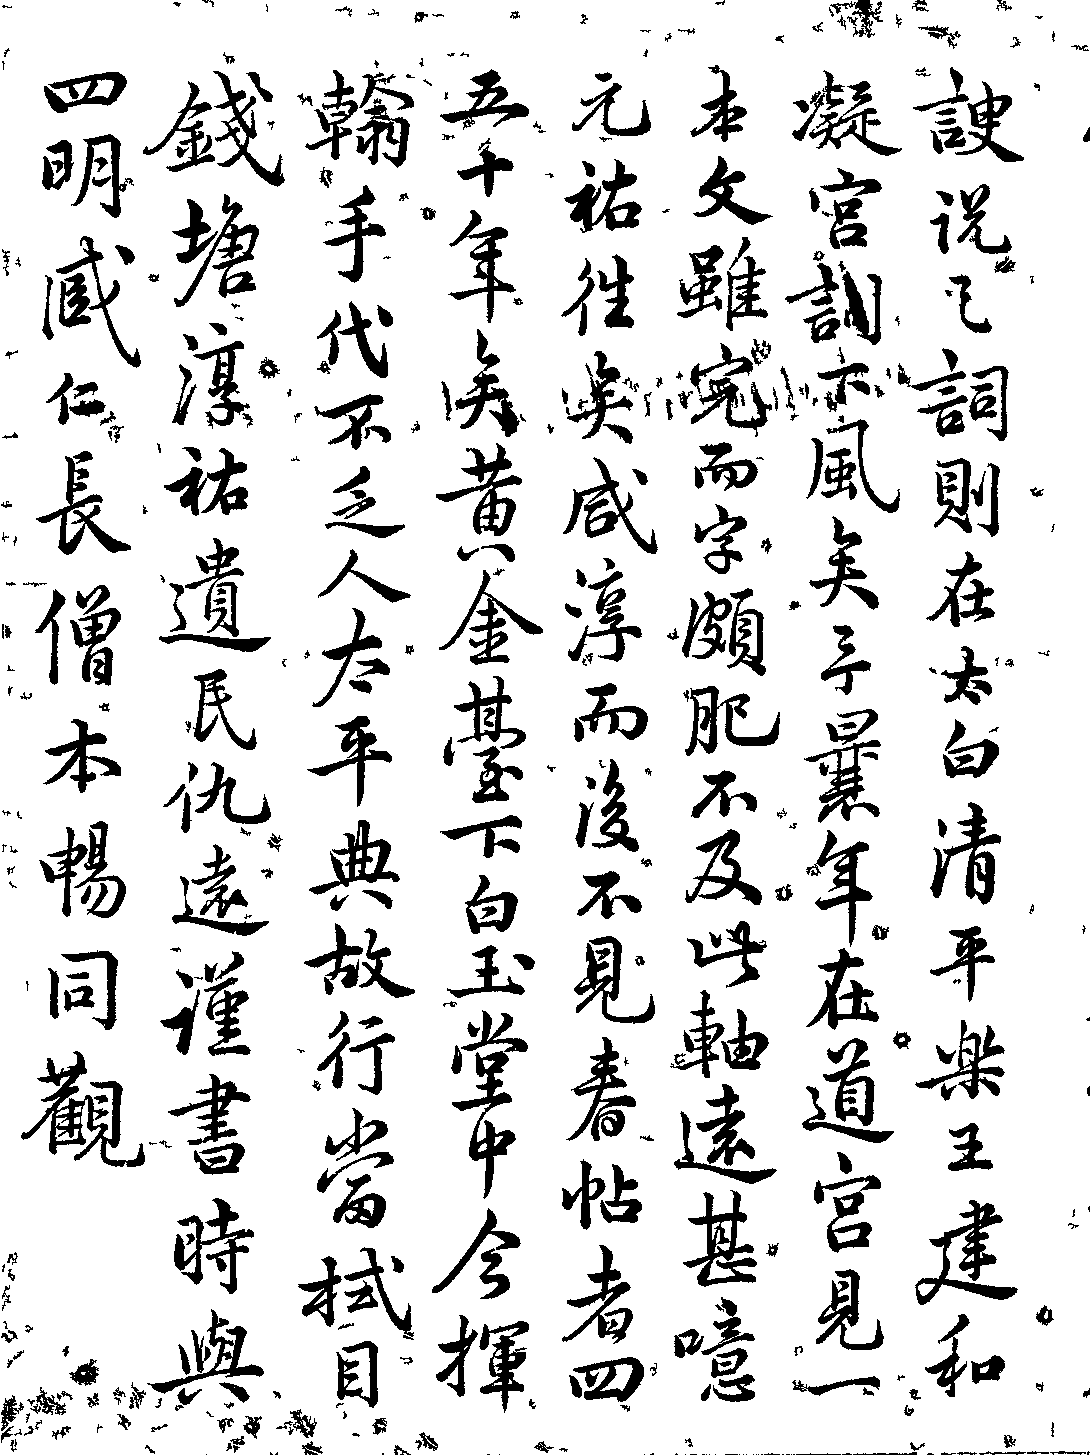 諛说之詞則在太白清平楽王建和
凝宮詞亦風矣予曩年在道宮見一
本文雖完而字頗肥不及此軸遠甚噫
元祐往矣咸淳而後不見春帖者四
五十年矣黃金臺下白玉堂中今揮
翰手代不乏人太平典故行當拭目
錢塘淳祐遺民仇遠謹書時與
四明臧仁長僧本暢同觀